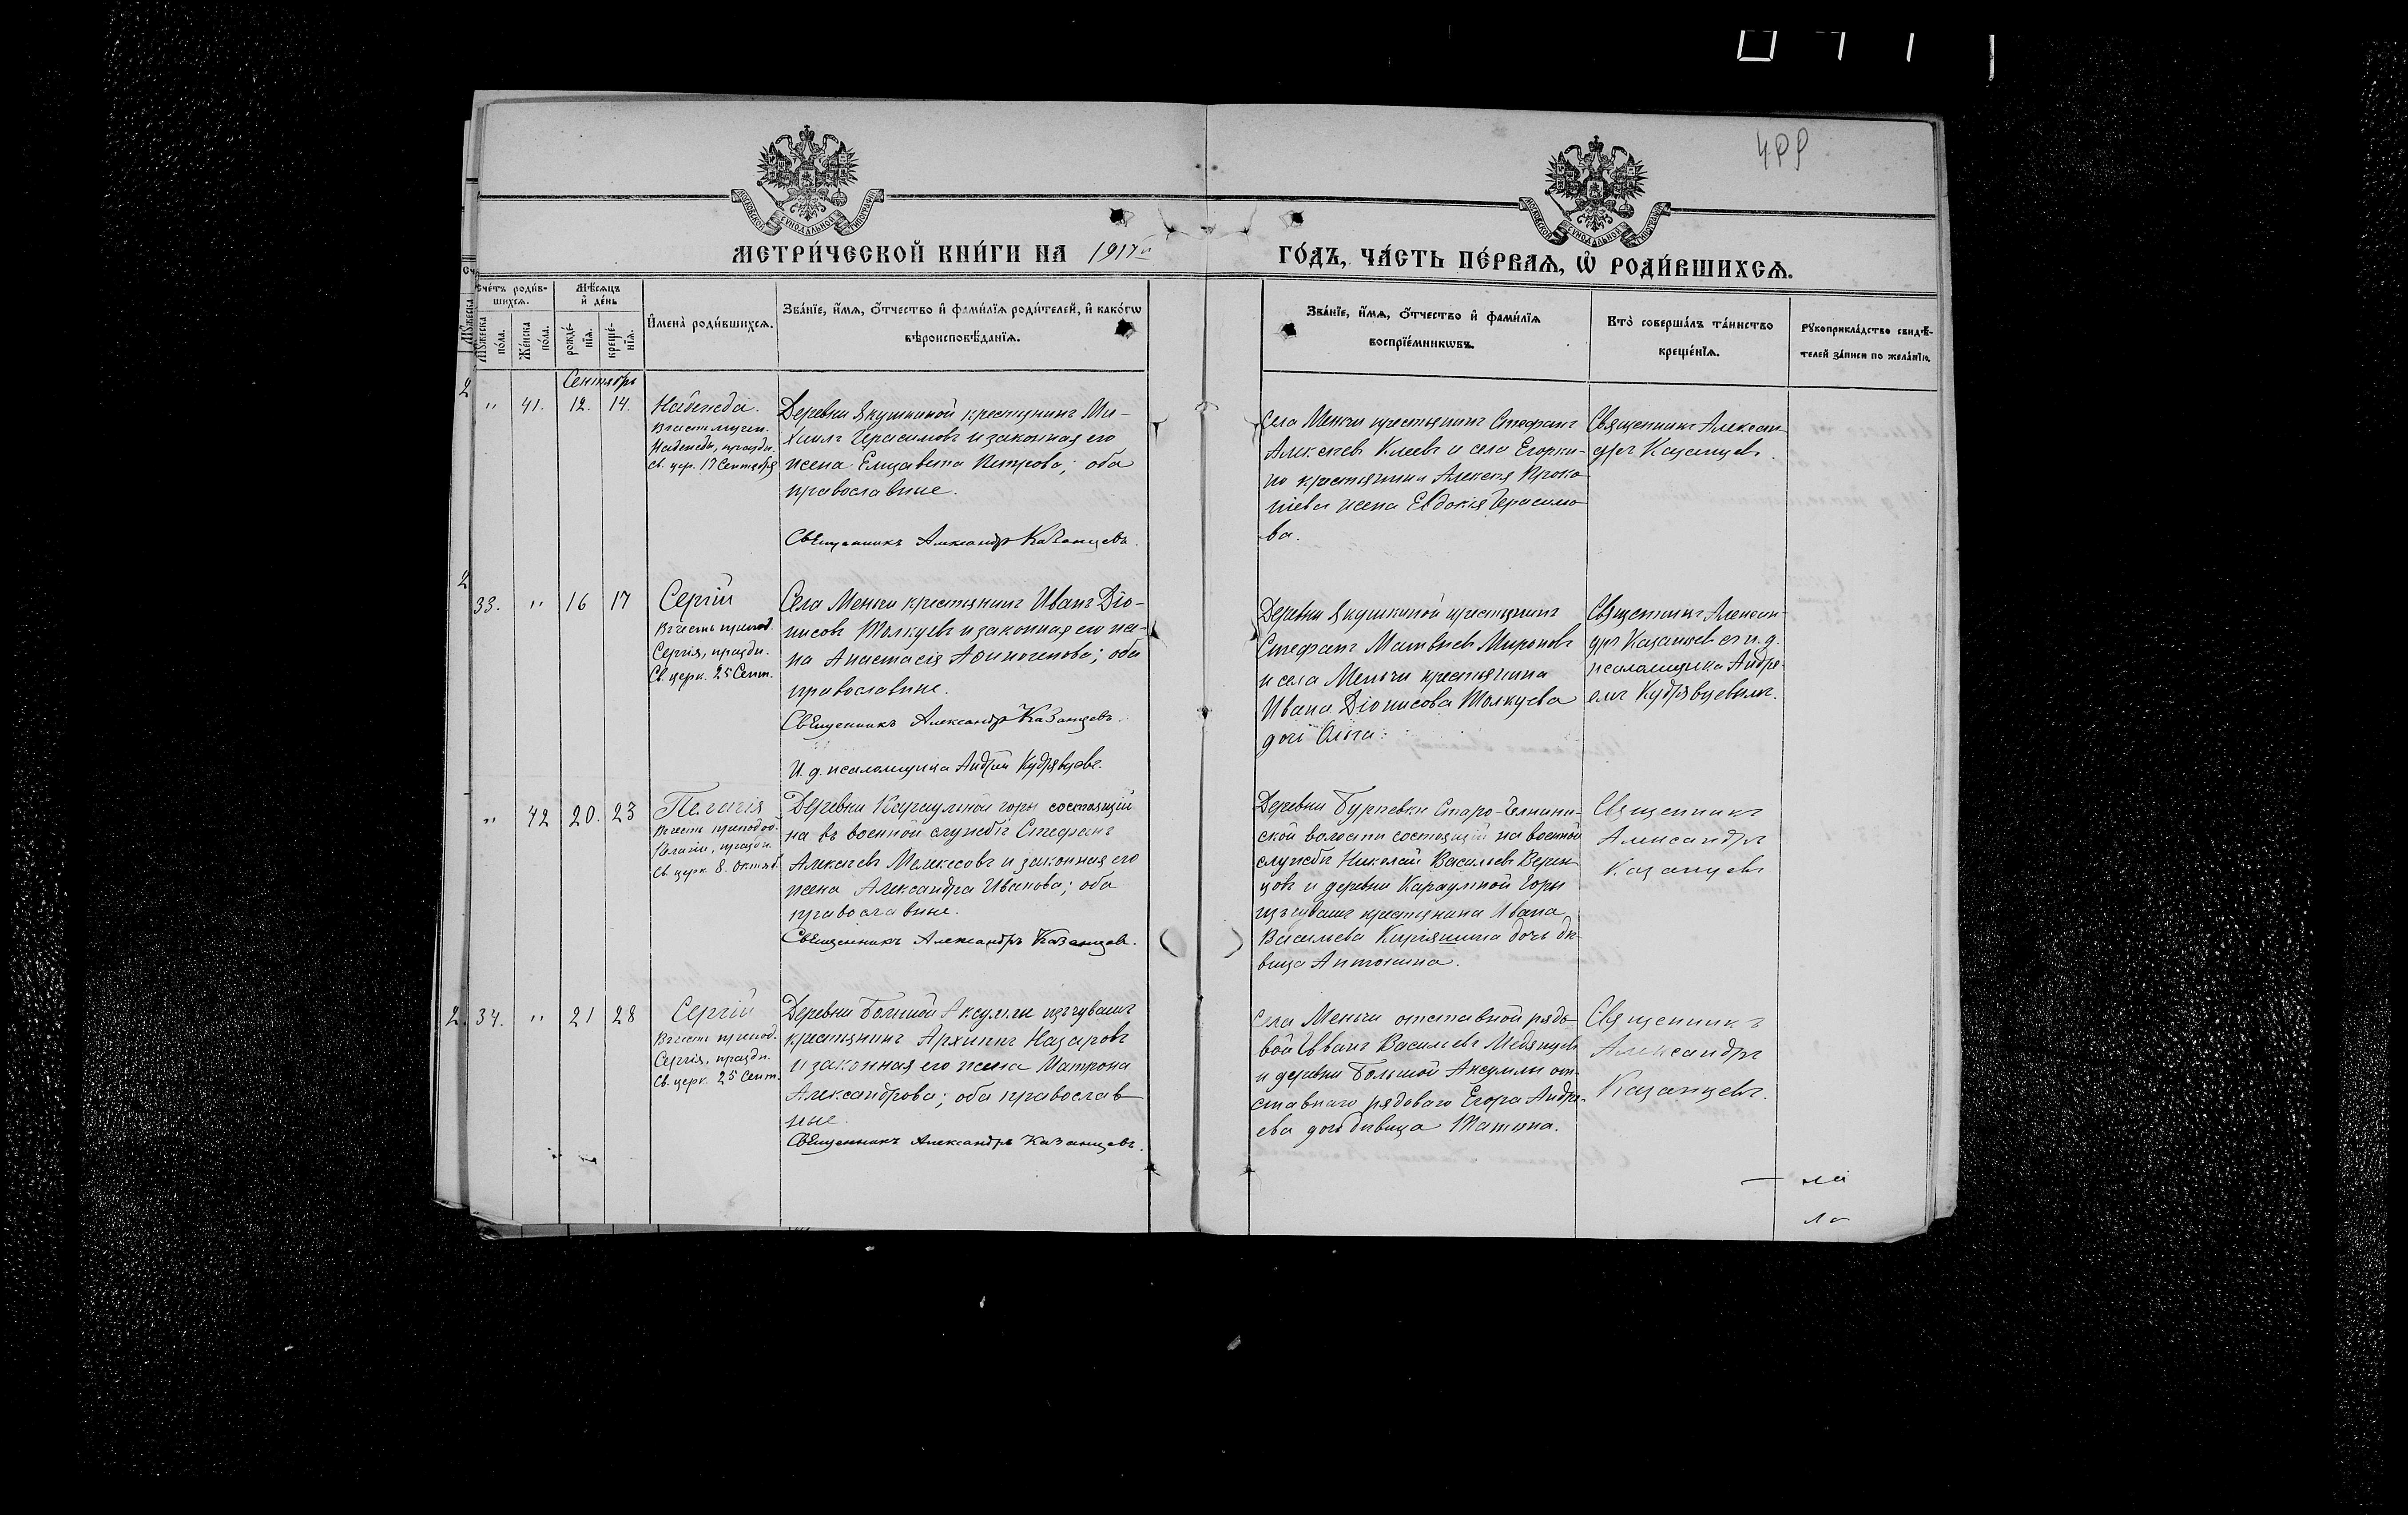 499
МОСКОВСКОЙ СУНОДАЛЬНОЙ ТИПОГРАФІИ
МОСКОВСКОЙ СУНОДАЛЬНОЙ ТИПОГРАФІИ
МЕТРИ́ЧЕСКОЙ КНИ́ГИ НА 1917й
ГО́ДЪ, ЧА́СТЬ ПЕ́РВАѦ, Ѡ҆ РОДИ́ВШИХСѦ.
Сче́тъ роди́в-
шихсѧ.
Мꙋжеска по́ла.
Же́нска по́ла.
Мѣ́сѧцъ
и҆ де́нь
рожде́-
нїѧ.
креще́-
нїѧ.
И҆мена̀ роди́вшихсѧ.
Зва́нїе, и҆́мѧ, ѻ҆́тчество и҆ фами́лїѧ роди́телей, и҆ како́гѡ
вѣроисповѣ́данїѧ.
Зва́нїе, и҆́мѧ, ѻ҆́тчество и҆ фами́лїѧ
воспрїе́мникѡвъ.
Кто̀ соверша́лъ та́инство
креще́нїѧ.
Рꙋкоприкла́дство свидѣ́-
телей за́писи по жела́нїю.
Сентябрь
" 41. 12. 14.
Надежда.
Въ честь мучен.
Надежды, праздн.
Св. цер. 17 Сентября
Деревни Якушкиной крестьянинъ Ми-
хаилъ Герасимовъ и законная его
жена Елизавета Петрова; оба
православные.
Священникъ Александръ Казанцевъ.
Села Менчи крестьянинъ Стефанъ
Алексѣевъ Клеевъ и села Егорки-
но крестьянина Алексѣя Проко-
піева жена Евдокія Герасимо-
ва.
Священникъ Алексан-
дръ Казанцевъ.
33. " 16 17
Сергій
Въ честь препод.
Сергія, праздн.
Св. церк. 25 Сент.
Села Менчи крестьянинъ Иванъ Діо-
нисовъ Толкуевъ и законная его же-
на Анастасія Аѳиногенова; оба
православные.
Священникъ Александръ Казанцевъ.
И. д. псаломщика Андрей Кудрявцевъ.
Деревни Якушкиной крестьянинъ
Стефанъ Матвѣевъ Мироновъ
и села Менчи крестьянина
Ивана Діонисова Толкуева
дочь Ольга.
Священникъ Алексан-
дръ Казанцевъ съ и. д.
псаломщика Андре-
емъ Кудрявцевымъ.
" 42 20. 23
Пелагія
Въ честь преподоб.
Пелагіи, праздн.
Св. церк. 8. Октяб.
Деревни Караульной горы состоящій
на въ военной службѣ Стефанъ
Алексѣевъ Мелекесовъ и законная его
жена Александра Иванова; оба
православные.
Священникъ Александръ Казанцевъ.
Деревни Старо-
ской волости состоящій на военной
службѣ Николай Васильевъ
и деревни Караульной Горы
изъ чувашъ крестьянина Ивана
Васильева дочь дѣ-
вица Антонина.
Священникъ
Александръ
Казанцевъ
2. 34. " 21 28
Сергій
Въ честь препод.
Сергія, праздн.
Св. церк. 25 Сент.
Деревни Большой Аксумлы изъ чувашъ
крестьянинъ Архиппъ Назаровъ
и законная его жена Матрона
Александрова; оба православ-
ные.
Священникъ Александръ Казанцевъ.
Села Менчи отставной рядо-
вой Иванъ Васильевъ
и деревни Большой Аксумлы от-
ставнаго рядоваго Егора Андре-
ева дочь дѣвица Татіана.
Священникъ
Александръ
Казанцевъ.